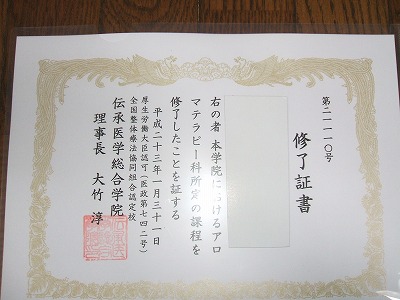 第二一一一〇号
修了証書
右の者 本学院におけるアロ
マテラピー科所定の課程を
修了したことを証する
平成二十三年一月三十一日
厚生労働大臣認可(医政第七四二号)
全国整体療法協同組合認定校
伝承医学総合学院
理事長 大竹 淳